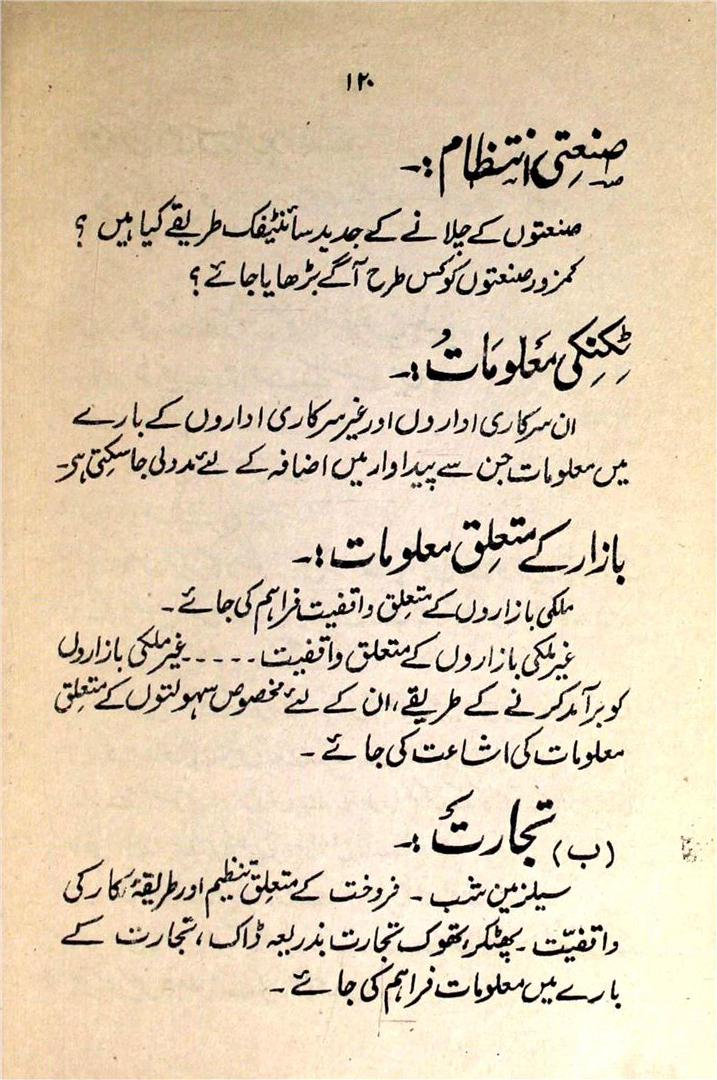 ۱۲۰
صنعتی انتظام :۔
صنعتوں کے چلانے کے جدید سائنٹیفک طریقے کیا ہیں ؟
کمزور صنعتوں کو کس طرح آگے بڑھایا جائے ؟
ٹکنکی معلومات :۔
ان سرکاری اداروں اور غیر سرکاری اداروں کے بارے
میں معلومات جن سے پیداوار میں اضافہ کے لئے مدد لی جا سکتی ہے۔
بازار کے متعلق معلومات :۔
ملکی بازاروں کے متعلق واقفیت فراہم کی جائے ۔
غیر ملکی بازاروں کے متعلق واقفیت ۔۔۔۔۔ غیر ملکی بازاروں
کو برآمد کرنے کے طریقے، ان کے لئے مخصوص سہولتوں کے متعلق
معلومات کی اشاعت کی جائے ۔
(ب) تجارت :۔
سیلزمین شب ۔ فروخت کے متعلق تنظیم اور طریقۂ کار کی
واقفیّت ۔ پھٹکر، تھوک تجارت بذریعہ ڈاک، تجارت کے
بارے میں معلومات فراہم کی جائے ۔